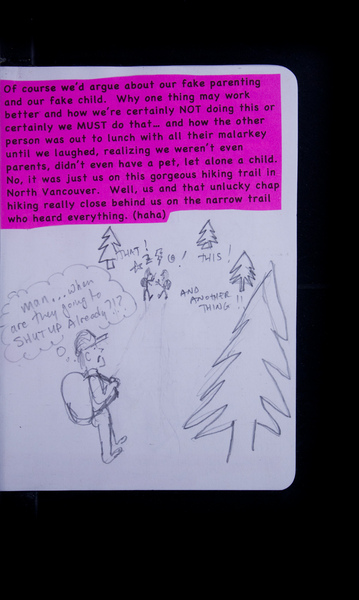 Of course we'd argue about our fake parenting
and our fake child. Why one thing may work
better and how we're certainly NOT doing this or
certainly we MUST do that... and how the other
person was out to lunch with all their malarkey
until we laughed, realizing we weren't even
parents, didn't even have a pet, let alone a child.
No, it was just us on this gorgeous hiking trail in
North Vancouver. Well, us and that unlucky chap
hiking really close behind us on the narrow trail
who heard everything. (haha)
THAT!
THIS!
AND
ANOTHER
THING!!
man...when
are they going to
SHUT UP Already?!?